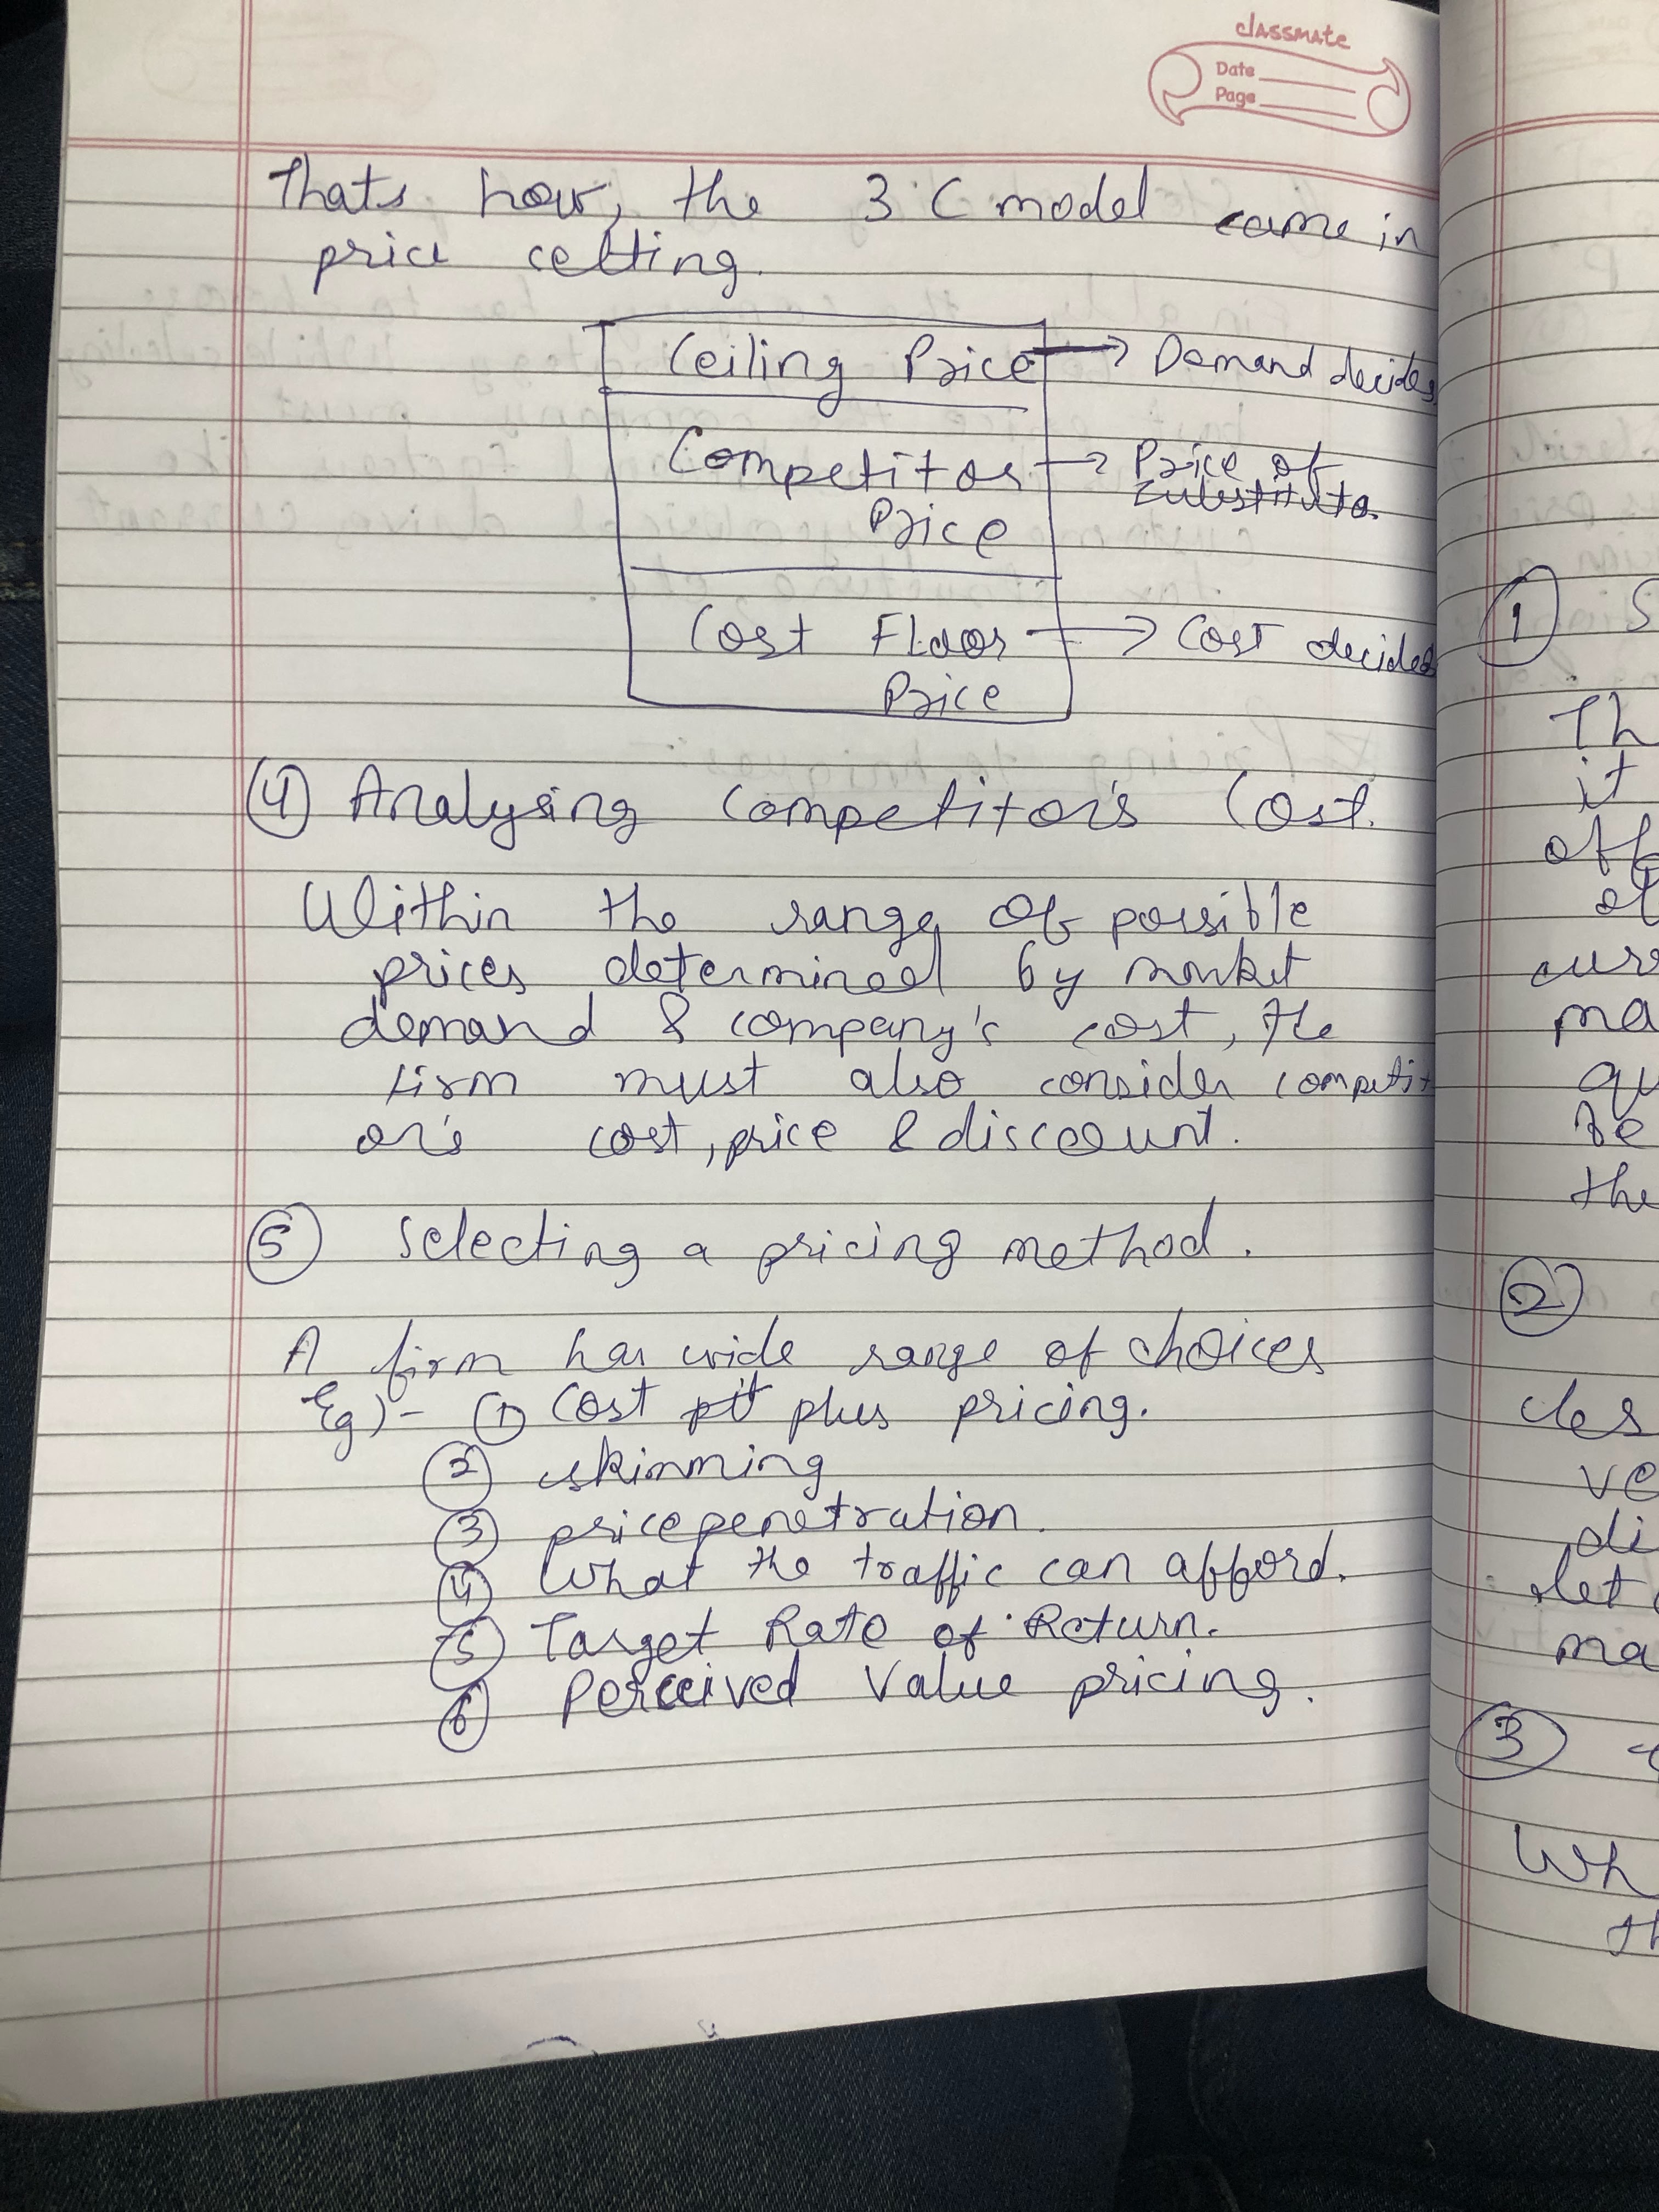 classmate
Date
Page
Thats how, the 3 C model came in
price cetting.
Ceiling Price → Demand decides
Competitor → Price of
Price substitute.
Cost Floor → Cost decides
Price
④ Analysing Competitor's Cost.
Within the range of possible
prices determined by market
demand & company's cost, the
firm must also consider competit
or's cost, price & discount.
⑤ Selecting a pricing method.
A firm has wide range of choices
Eg)- ① Cost plus pricing.
② skimming
③ price penetration.
④ What the traffic can afford.
⑤ Target Rate of Return.
⑥ Perceived Value pricing.
① S
Th
it
off
of
curr
ma
qu
be
the
②
cles
ve
di
let
ma
③
Wh
th